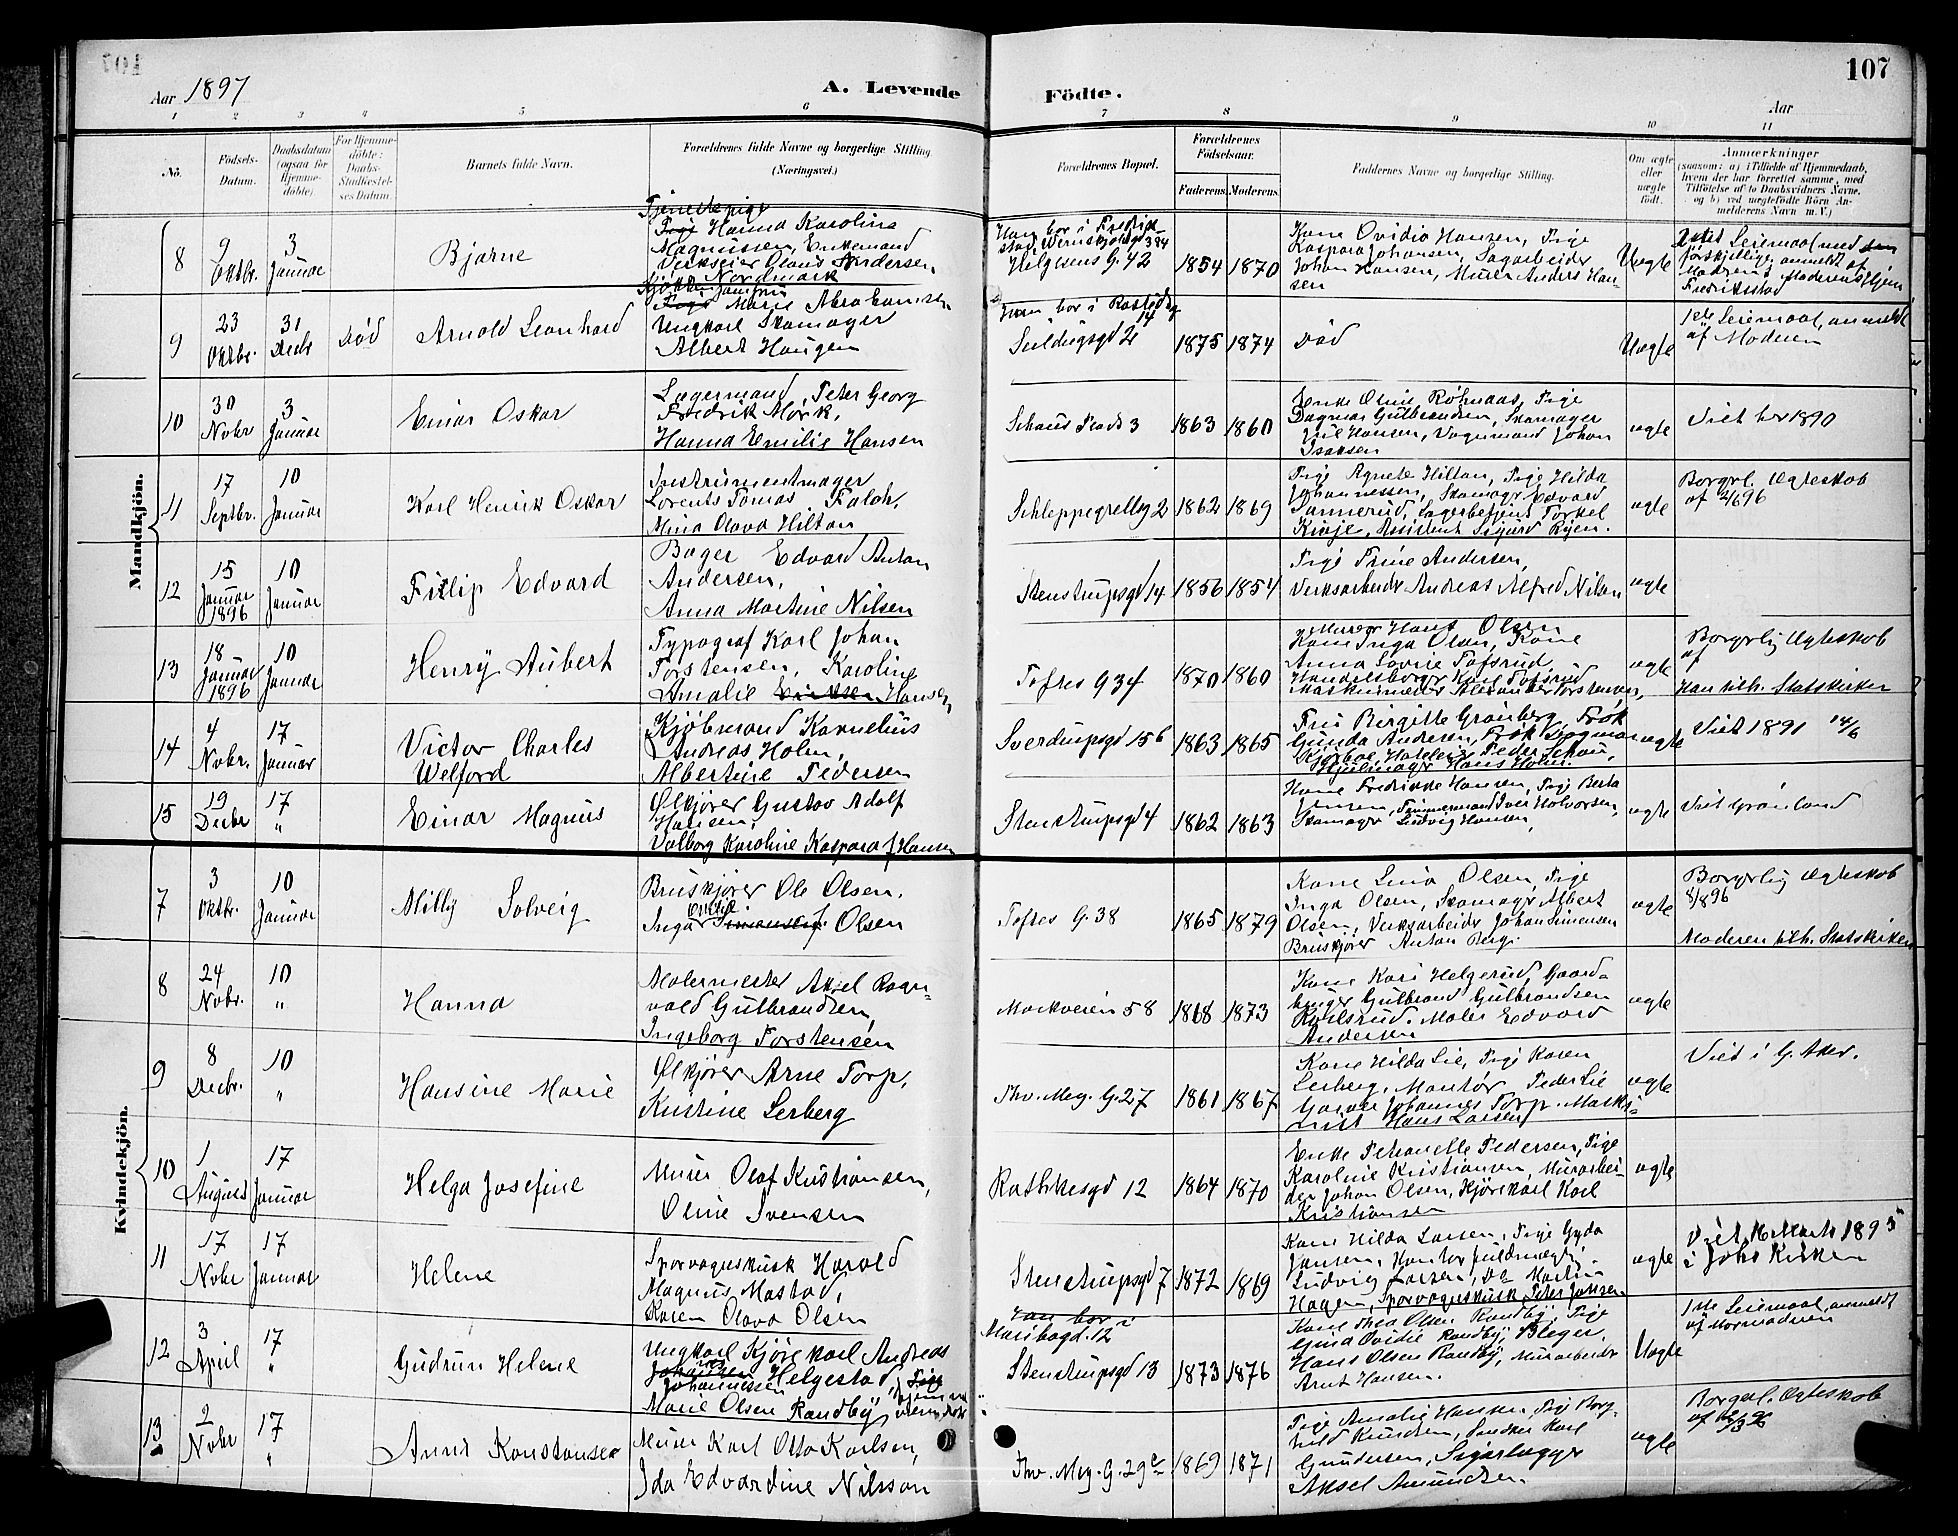 107
Aar 1897
A. Levende Födte.
Aar
1 2 3 4 5 6 7 8 9 10 11
No.
Födsels-Datum.
Daabsdatum (ogsaa for Hjemmedöbte).
For Hjemmedöbte: Daabs-Stadfæstelses Datum.
Barnets fulde Navn.
Forældrenes fulde Navne og borgerlige Stilling (Næringsvei.)
Forældrenes Bopæl.
Forældrenes Födselsaar.
Faderens. Moderens.
Faddernes Navne og borgerlige Stilling.
Om ægte eller uægte födt.
Anmærkninger
(saasom: a) i Tilfælde af Hjemmedaab, hvem der har forrettet samme, med Tilföielse af to Daabsvidners Navne, og b) ved uægtefödte Börn Anmelderens Navn m. V.)
Mandkjön.
8
9 Oktbr.
3 Januar
Bjarne
Tjenestepige
Pige Hanna Karolina
Magnussen, Enkemand
Værkseier Olaus Andersen
Nordmark
Han bor i Fredrikstad
Helgesens G. 42
1854 1870
Kone Ovidia Hansen, Pige
Kaspara Johansen, Sagarbeider
Johan Hansen, Murer Anders Hansen
Uægte
Leiermaal med
forskjellige, anmeldt af
Moderens Moderens Hjem
Fredriksstad
9
23 Oktbr.
31 Decbr
Död
Arnold Leonhard
Kjökkenjomfru
Pige Marie Abrahamsen
Ungkarl Skomager
Albert Haugen
Han bor i
14
Seildugsgd 2
1875 1874
Död
Uægte
1ste Leiermaal, anmeldt
af Moderen
10
30 Novbr
3 Januar
Einar Oskar
Lagermand, Peter Georg
Fredrik Mork,
Hanna Emilie Hansen
Schous Plads 3
1863 1860
Enke Oline Röhnaas, Pige
Dagmar Gulbrandsen, Skomager
Emil Hansen, Vognmand Johan
Isaksen
ægte
Viet her 1890
11
17 Septbr.
10 Januar
Karl Henrik Oskar
Instrumentmager
Lorents Tomas Falch,
Mina Olava Hilton
Schleppegrellsg 2
1862 1869
Pige Agnete Hilton, Pige Hilda
Johannessen, Skomagr Edvard
Sannerud, Lagerbetjent Torkel
Assistent Sigurd Ryen.
ægte
Borgerl. Ægteskab
af 2/6 96
12
15 Januar 1896
10 Januar
Filip Edvard
Bager Edvard Anton
Andersen,
Anna Martine Nilsen
Stenstrupsgd 14
1856 1854
Pige Trine Andersen,
Verksarbeider Andreas Alfred Nilsen
ægte
13
18 Januar 1896
10 Januar
Henry Aubert
Typograf Karl Johan
Torstensen, Karoline
Amalie Eriksen Hansen,
Toftes G 34
1870 1860
Murer Hans Olsen
Kone Inga Olsen, Kone
Anna Lovise Tofsrud,
Handelsborger Karl Tofsrud
Maskinmester Alexander Torstensen,
ægte
Borgerlig Ægteskab
af
Han tilh. Statskirken
14
4 Novbr.
17 Januar
Victor Charles
Welford
Kjöbmand Kornelius
Andreas Holm,
Albertine Pedersen
Sverdrupsgd 15 b
1863 1865
Fru Birgitte Grönberg, Frök
Gunda Andersen, Frök Dagmar
Kjörboe, Hoteleier Peder Schou,
Hjulmagr Hans Holm
ægte
Viet 1891 14/6
15
19 Decbr
17 "
Einar Magnus
Ölkjörer Gustav Adolf
Hansen,
Valborg Karoline Kaspara f Hansen
Stenstrupsgd 4
1862 1863
Kone Fredrikke Hansen, Pige Berta
Jensen, Tömmermand Iver Halvorsen,
Skomagr Ludvig Hansen,
ægte
Viet Grönland
Kvindekjön.
7
3 Oktbr.
10 Januar
Milly Solveig
Bruskjörer Ole Olsen,
Inga Ovidie Simensen f. Olsen
Toftes G. 38
1865 1879
Kone Lina Olsen, Pige
Inga Olsen, Skomagr Albert
Olsen, Verksarbeider Johan Simensen
Bruskjörer Anton Berg.
ægte
Borgerlig Ægteskab
8/8 96
Moderen tilh. Statskirken
8
24 Novbr.
10 "
Hanna
Malermester Aksel Ragnvald Gulbrandsen,
Ingeborg Torstensen
Markveien 58
1868 1873
Kone Kari Helgerud, Gaardbruger Gulbrand Gulbrandsen
Maler Edvard
Andersen
ægte
9
8 Decbr.
10 "
Hansine Marie
Ölkjörer Arne Torp,
Kristine Lerberg
Thv. Mey. G. 27
1861 1867
Kone Hilda Lie, Pige Karen
Lerberg, Montör Peder Lie
Johannes Torp. Maskinist Hans Larsen
ægte
Viet i G. Aker.
10
1 August
17 Januar
Helga Josefine
Murer Olaf Kristiansen,
Oline Svensen
Rathkesgd 12
1864 1870
Enke Petronelle Pedersen, Pige
Karoline Kristiansen, Murarbeider Johan Olsen, Kjörekarl Karl
Kristiansen
ægte
11
17 Novbr
17 Januar
Helene
Sporvognskusk Harald
Magnus Mastad,
Karen Olava Olsen
Stenstrupsgd 7
1872 1869
Kone Hilda Larsen, Pige Gyda
Jansen, Kontorfuldmægtig
Ludvig Larsen, Do Martin
Hagen, Sporvognskusk Peter Johnsen
ægte
Viet Marts 1895
i Johs Kirken
12
3 April
17 "
Gudrun Helene
Ungkarl Kjörekarl Andreas
Johannessen Helgestad, Pige
Marie Olsen Randby,
Han bor i
Maribogd. 12
Stenstrupsgd 13
1873 1876
Kone Thea Olsen Randby, Pige
Gina Ovidie Randby,
Hans Olsen Randby, Murarbeider
Arnt Hansen.
Uægte
1ste Leiermaal, anmeldt
af Mormoderen
13
2 Novbr
17 "
Anna Konstanse
Murer Karl Otto Karlsen,
Ida Edvardine Nilsson
Thv. Mey. G. 29
1869 1871
Pige Amalie Hansen, Pige Borghild Knudsen, Snedker Karl
Gundersen,
Aksel Amundsen.
ægte
Borgerl. Ægteskab